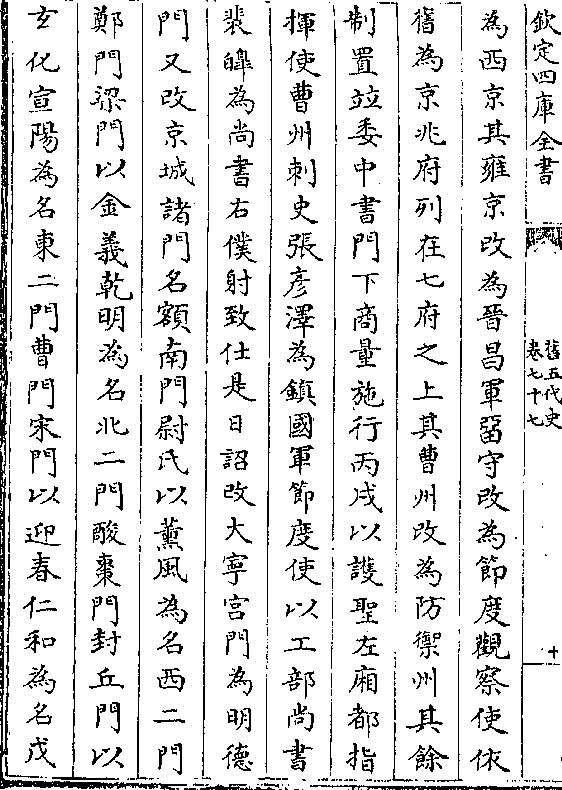 欽定四庫全書
舊五代史
卷七十七
十
為西京其雍京改為晉昌軍留守改為節度觀察使依
舊為京兆府列在七府之上其曹州改為防禦州其餘
制置竝委中書門下商量施行丙戌以護聖左廂都指
揮使曹州刺史張彥澤為鎮國軍節度使以工部尚書
裴皥為尚書右僕射致仕是日詔改大寧宮門為明德
門又改京城諸門名額南門尉氏以薰風為名西二門
鄭門梁門以金義乾明為名北二門酸棗門封丘門以
玄化宣陽為名東二門曹門宋門以迎春仁和為名戊